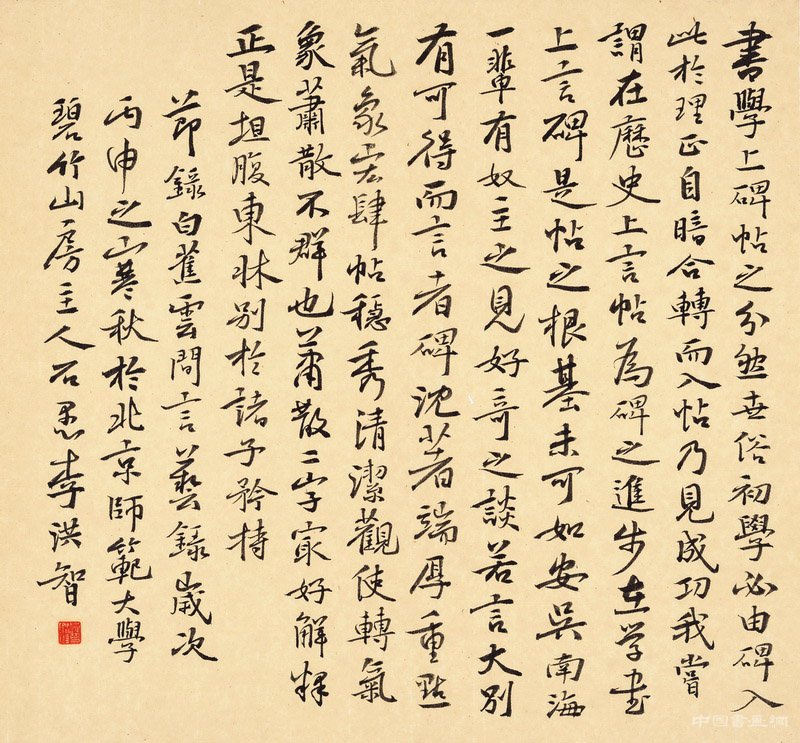 書學上碑帖之分然世俗初學必由碑入
此於理正自暗合轉而入帖乃見成功我嘗
謂在歷史上言帖為碑之進步在学書
上言碑是帖之根基未可如安吳南海
一輩有奴主之見好奇之談若言大別
有可得而言者碑沈著端厚重點
氣象宏肆帖穩秀清潔觀使轉氣
象蕭散不群也蕭散二字最好解釋
正是坦腹東牀別於諸子矜持
節錄白蕉雲間言藝錄歲次
丙申之秋於北京師範大學
碧竹山房主人石愚李洪智
中国書画網